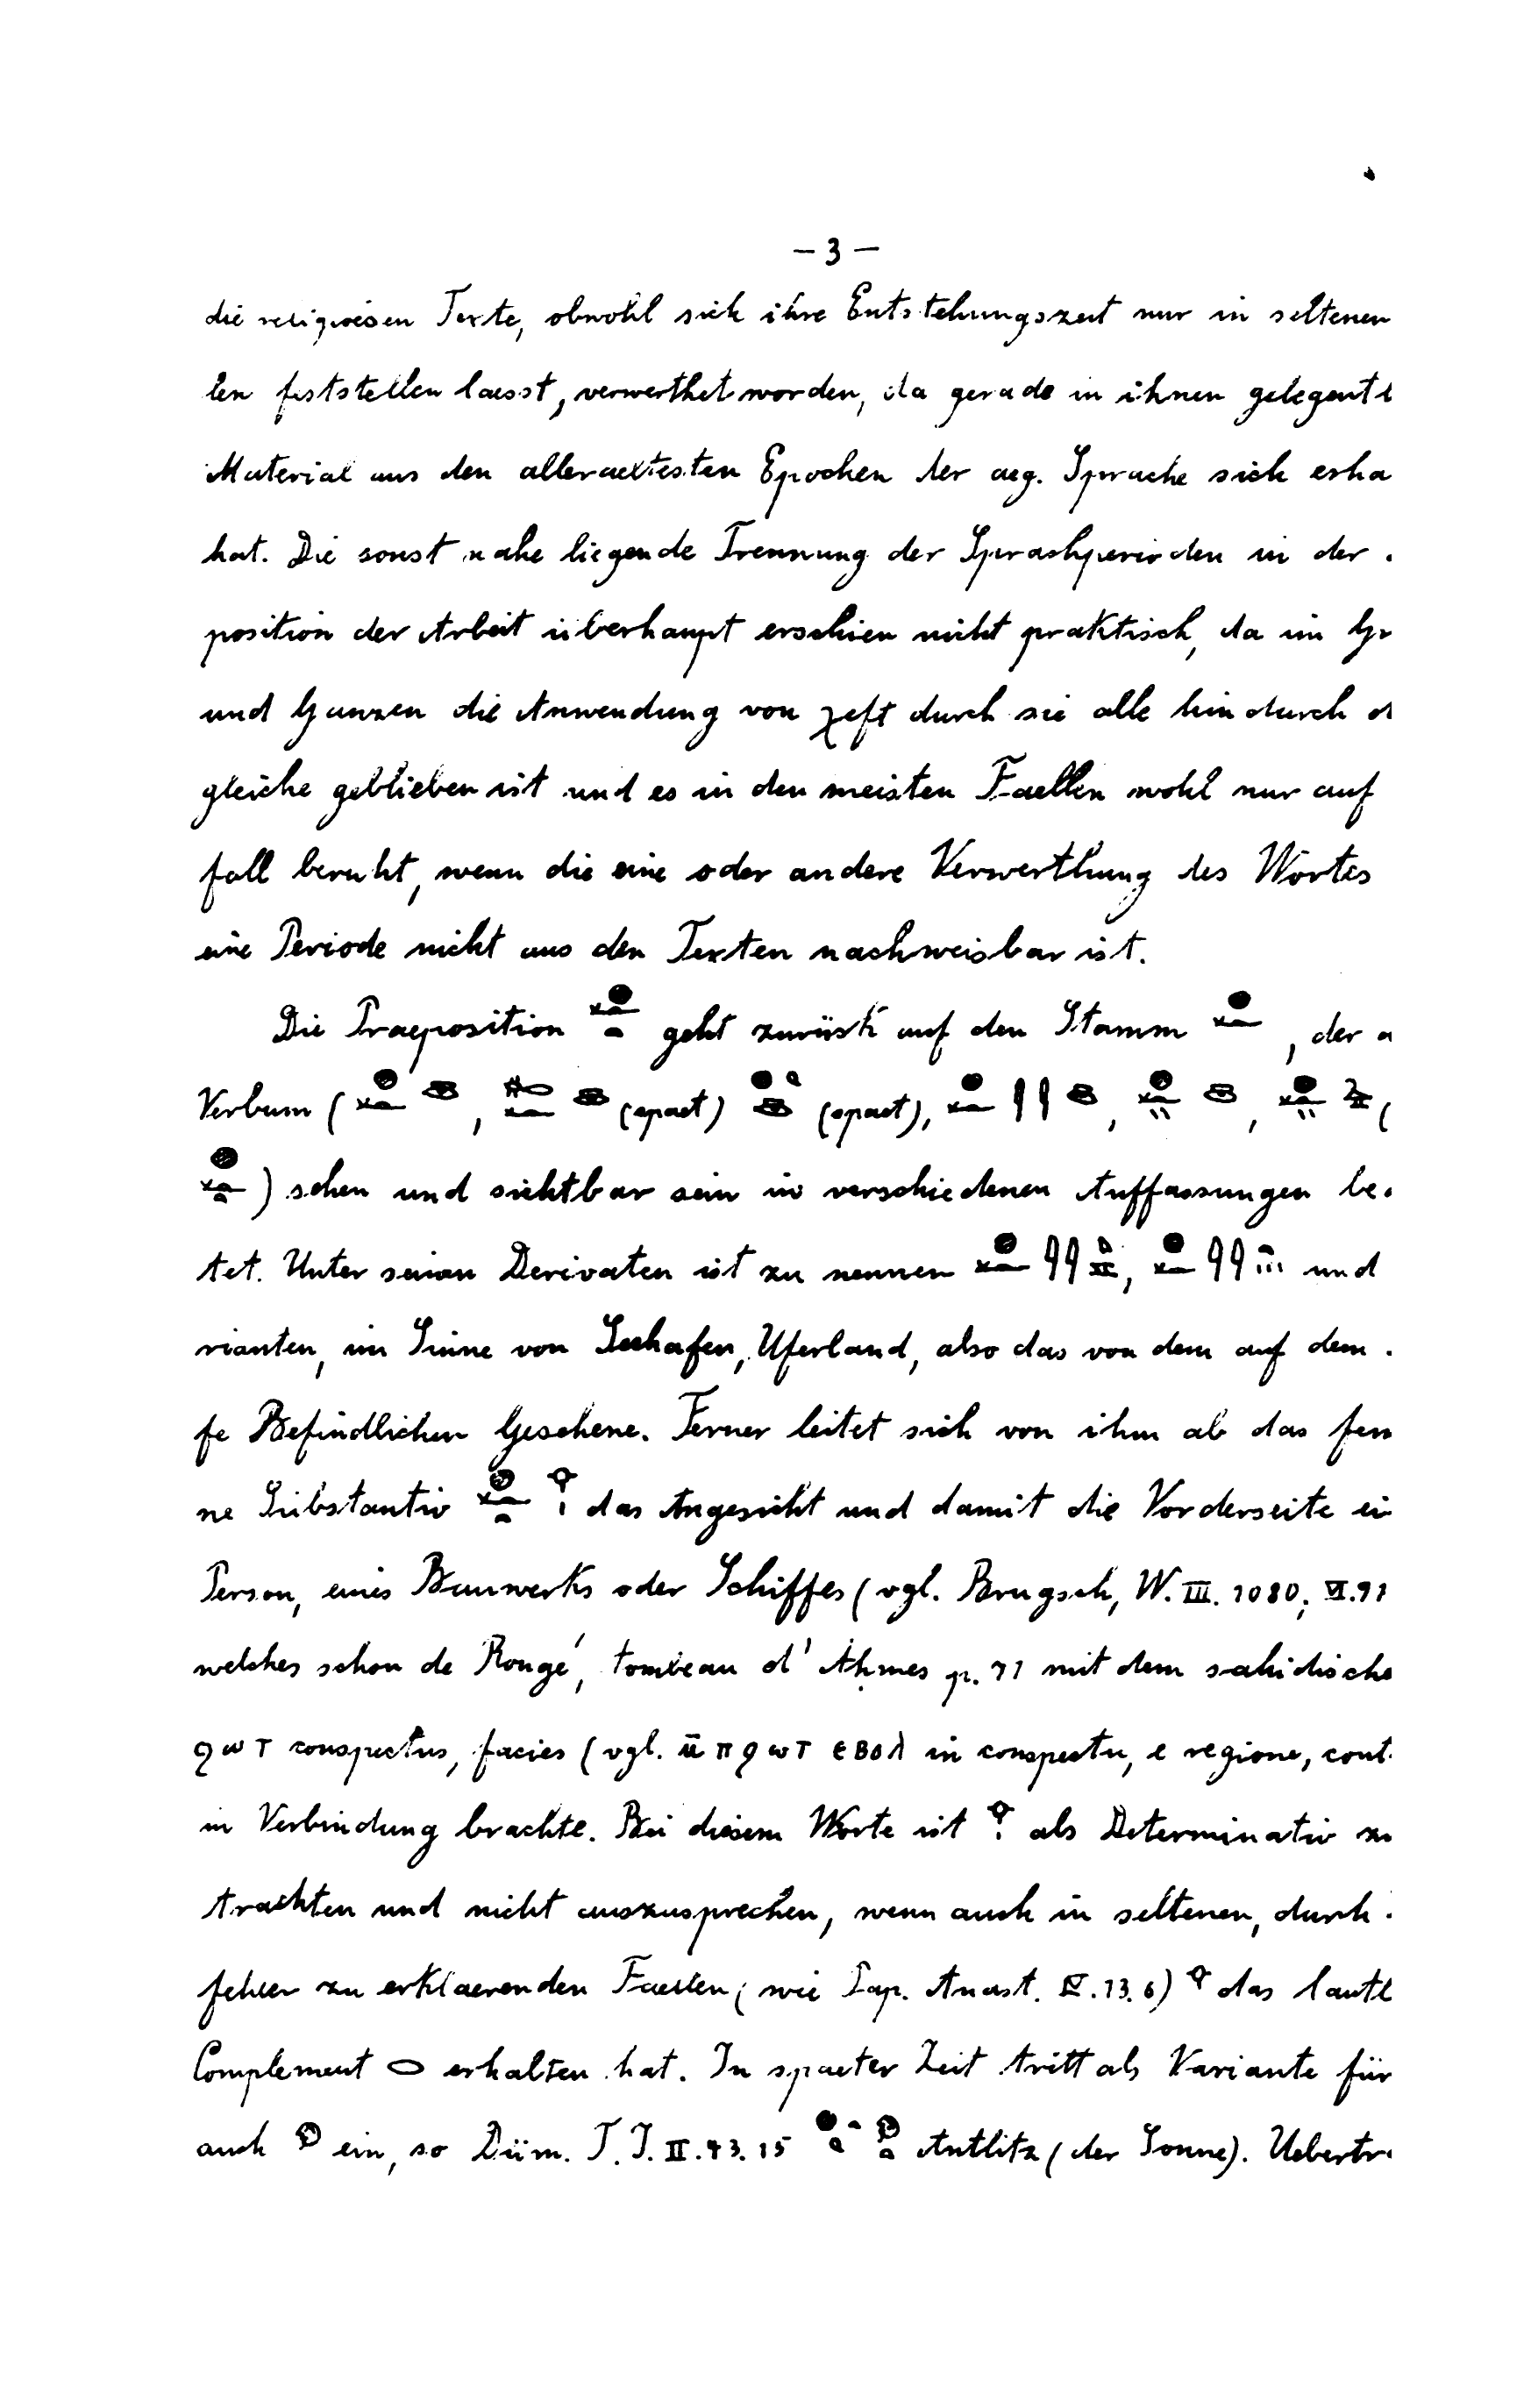 – 3 –
die religioesen Texte, obwohl sich ihre Entstehungszeit nur in seltenen
len feststellen laesst, verwerthet worden, da gerade in ihnen gelegentl
Material aus den alleraeltesten Epochen der aeg. Sprache sich erha
hat. Die sonst nahe liegende Trennung der Sprachperioden in der
position der Arbeit überhaupt erschien nicht praktisch, da im Gr
und Ganzen die Anwendung von χeft durch sie alle hindurch d
gleiche geblieben ist und es in den meisten Faellen wohl nur auf
fall beruht, wenn die eine oder andere Verwerthung des Wortes
eine Periode nicht aus den Texten nachweisbar ist.
Die Praeposition 𓐍𓆑𓏏 geht zurück auf den Stamm 𓐍𓆑, der a
Verbum ( , (spaet) (spaet), , , (
) sehen und sichtbar sein in verschiedenen Auffassungen be
tet. Unter seinen Derivaten ist zu nennen , und
rianten, im Sinne von Seehafen, Uferland, also das von dem auf dem
fe Befindlichen Gesehene. Ferner leitet sich von ihm ab das fem
ne Substantiv 𓐍𓆑𓏏𓁷𓏤 das Angesicht und damit die Vorderseite ei
Person, eines Bauwerks oder Schiffes (vgl. Brugsch, W. III. 1080; VI. 91
welches schon de Rougé, tombeau d'Aḥmes p. 71 mit dem sahidische
ϩⲱⲧ conspectus, facies (vgl. ⲙ̄ⲡϩⲱⲧ ⲉⲃⲟⲗ in conspectu, e regione, cont
in Verbindung brachte. Bei diesem Worte ist 𓁷𓏤 als Determinativ zu
trachten und nicht auszusprechen, wenn auch in seltenen, durch
fehler zu erklaerenden Faellen (wie Pap. Anast. IV. 13. 6) 𓁷 das lautl
Complement 𓂋 erhalten hat. In spaeter Zeit tritt als Variante für
auch 𓁶 ein, so Düm. T. I. II. 43. 15 Antlitz (der Sonne). Uebertr